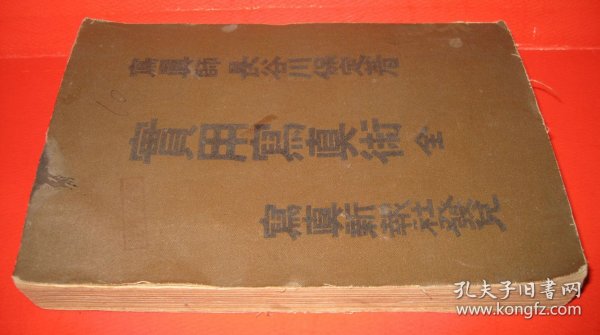 寫真師 長谷川保定著
實用寫真術 全
寫真新報社發兌
孔夫子旧书网
www.kongfz.com